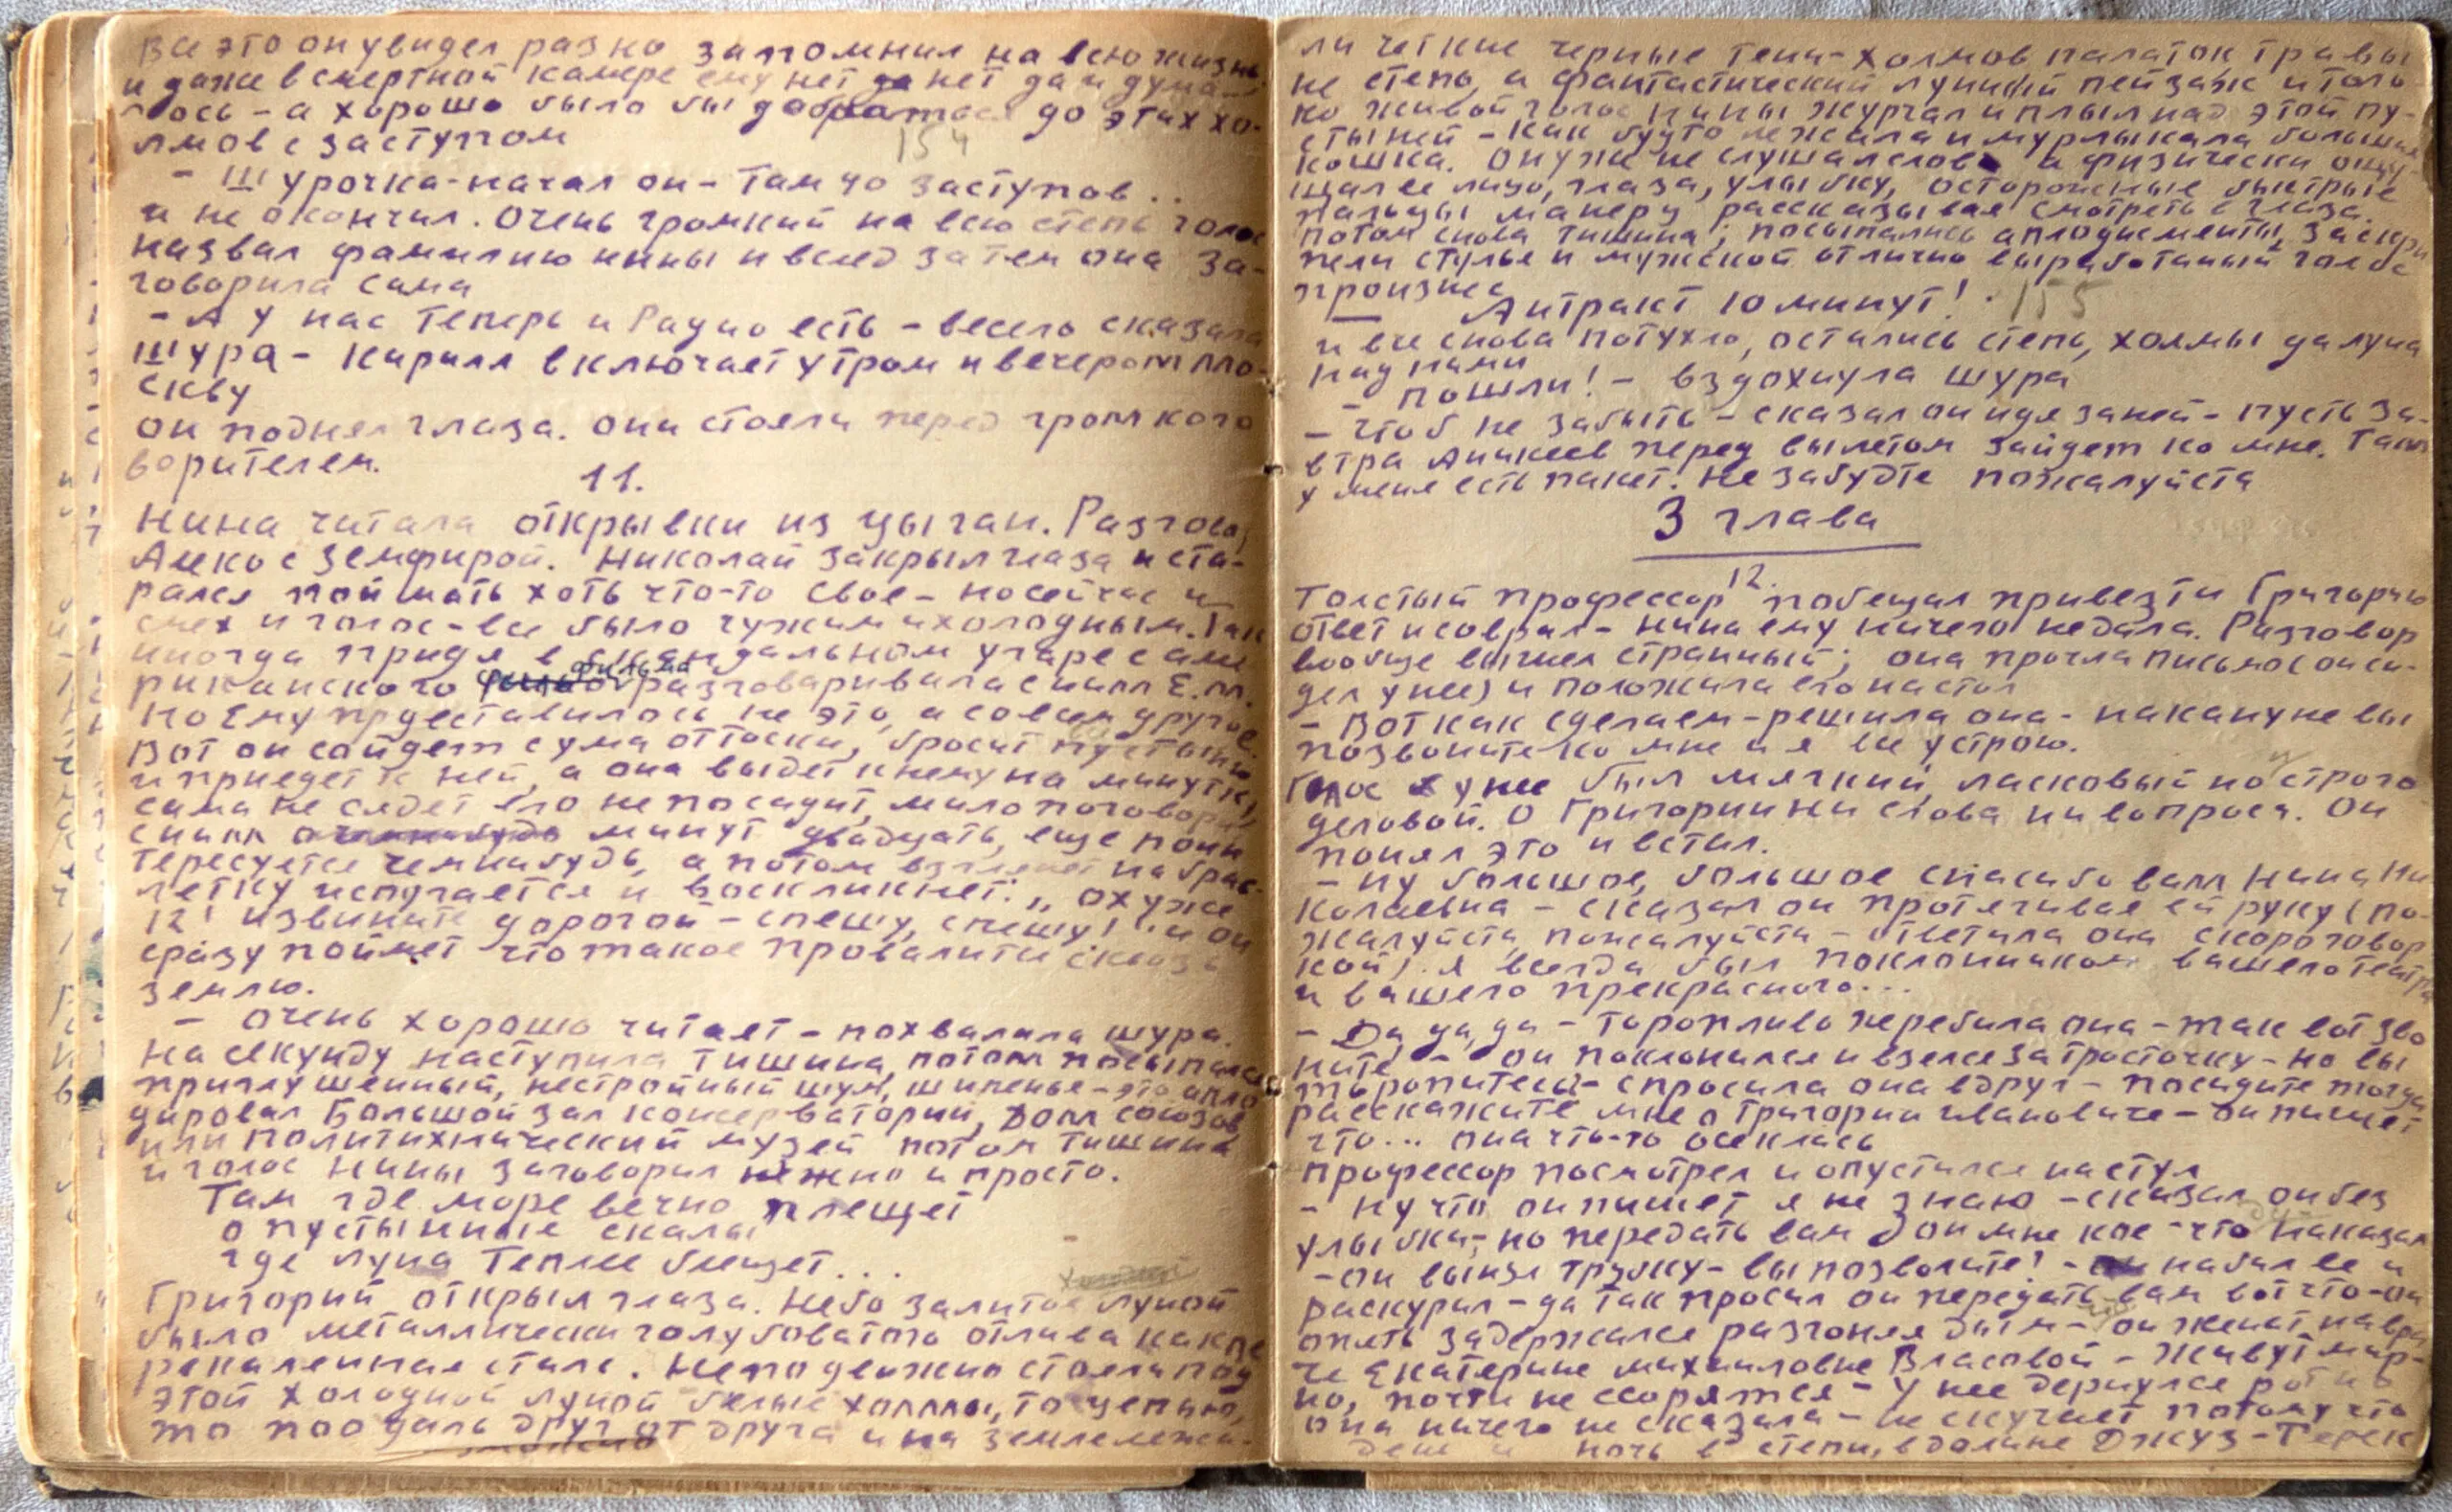 Все это он увидел разко запомнил на всю жизнь
и даже в смертной камере ему нет да нет да и дума-
лось - а хорошо было бы добраться до этих хо-
лмов с заступом
154
- Шурочка - начал он - там 40 заступов..
и не окончил. Очень громкий на всю степь голос
назвал фамилию нины и вслед за тем она за-
говорила сама
- А у нас теперь и Радио есть - весело сказала
Шура - Кирилл включает утром и вечером Мо-
скву
Он поднял глаза. Они стояли перед громкого
ворителем.
11.
Нина читала открывки из цыган. Разговор
Алеко с Земфирой. Николай закрыл глаза и ста-
рался поймать хоть что-то свое - но сейчас и
смех и голос - все было чужим и холодным. Так
иногда придя в угаре с аме
риканского фильма разговаривала с ним Е.М.
Но ему представилось не это, а совсем другое.
Вот он сойдет с ума от тоски, бросит пустыню
и приедет к ней, а она выдет к нему на минутку,
сама не сядет его не посадит, мило поговорит
с ним минут двадцать, еще поин
тересуется чем нибудь, а потом взглянет на брас-
летку испугается и воскликнет: „ ох уже
12! извините дорогой - спешу, спешу!" и он
сразу поймет что такое провалиться сквозь
землю.
- очень хорошо читает - похвалила шура.
На секунду наступила тишина, потом посыпался
приглушенный, нестройный шум, шипенье - это апло
дировал Большой зал консерватории, Дом союзов
или политихнический музей потом тишина
и голос Нины заговорил нежно и просто.
Там где море вечно плещет
о пустынные скалы
где луна теплее блещет...
Григорий открыл глаза. Небо залитое луной
было металлически голубоватого отлива как пе
рекаленная сталь. Неподвижно стояли под
этой холодной луной белые холмы, то цепью,
то поодаль друг от друга и на земле лежа-
ли четкие черные тени - холмов палаток травы
не степь, а фантастический лунный пейзаж и толь
ко живой голос нины журчал и плыл над этой пу-
стыней - как будто лежала и мурлыкала большая
кошка. Он уже не слушал слов а физически ощу-
щал ее лицо, глаза, улыбку, осторожные быстрые
пальцы манеру рассказывая смотреть в глаза.
потом снова тишина; посыпались аплодисменты, заскри
пели стулья и мужской отлично выработаный голос
произнес
Антракт 10 минут!
155
и все снова потухло, остались степь, холмы да луна
над ними
- пошли! - вздохнула шура
- чтоб не забыть - сказал он идя за ней - пусть за-
втра Аникеев перед вылетом зайдет ко мне. Там
у меня есть пакет. Не забудте пожалуйста
3 глава
12.
Толстый профессор побещал привезти Григорию
ответ и соврал - нина ему ничего не дала. Разговор
вообще вышел странный; она прочла письмо (он си-
дел у нее) и положила его на стол
- Вот как сделаем - решила она - накануне вы
позвоните ко мне и я все устрою.
Голос у нее был мягкий, ласковый но строго
деловой. О Григории ни слова ни вопроса. Он
понял это и встал.
- ну большое, большое спасибо вам Нина Ни
колаевна - сказал он протягивая ей руку (по-
жалуйста, пожалуйста - ответила она скороговор
кой). я всегда был поклонником вашего театра
и вашего прекрасного...
- Да, да, да - торопливо перебила она - так вот зво
ните - он поклонился и взялся за тросточку - но вы
торопитесь - спросила она вдруг - посидите тогда
расскажите мне о Григории Ивановиче - он пишет
что... она что-то осеклась
профессор посмотрел и опустился на стул
- ну что он пишет я не знаю - сказал он без
улыбки, но передать вам он мне кое-что наказал
- он вынул трубку - вы позволите! - набил ее и
раскурил - да так просил он передать вам вот что - он
опять задержался разгоняя дым - он женат на вра
че Екатерине михаиловне Власовой - живут мир-
но, почти не ссорятся - у нее дернулся рот но
она ничего не сказала - не скучает потому что
день и ночь в степи, в долине Джуз-Терек